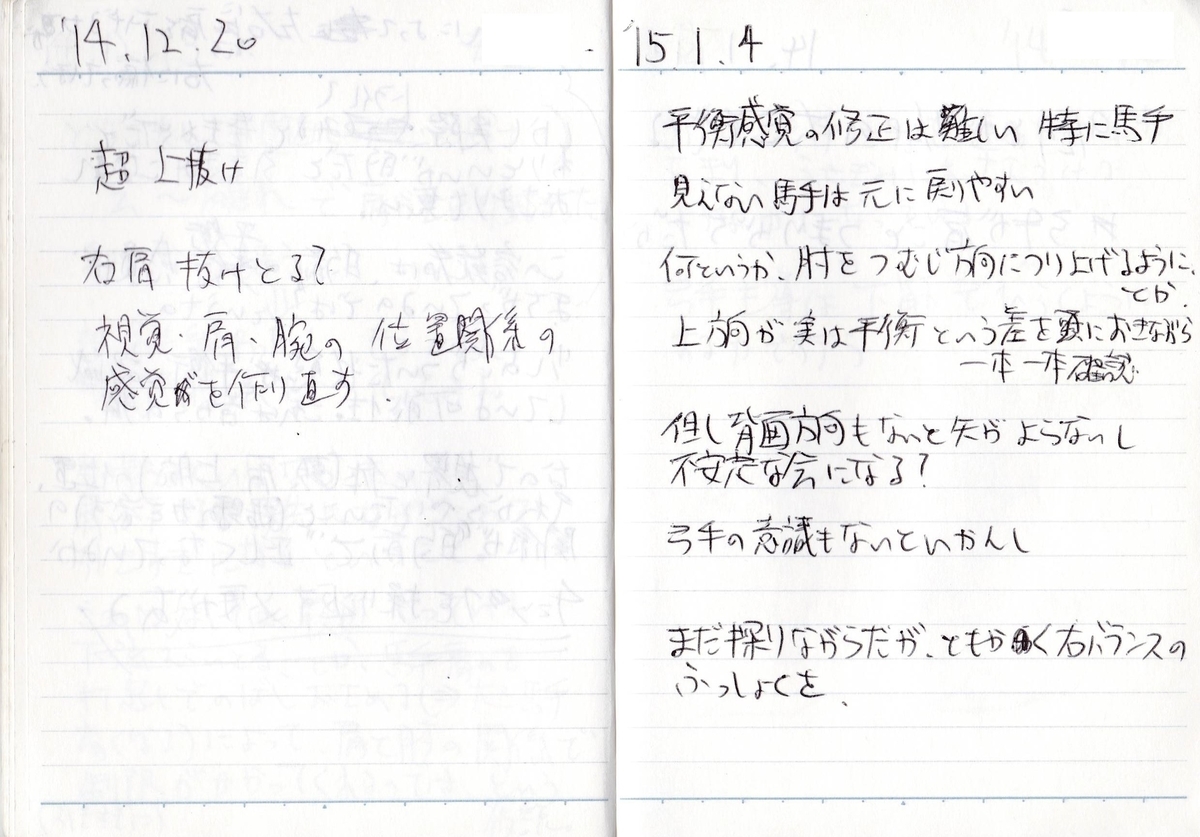 '14.12.20
超上抜け
右肩 抜けとる?
視覚・肩・腕の 位置関係の
感覚を作り直す.
'15.1.4
平衡感覚の修正は難しい 特に馬手
見えない馬手は元に戻りやすい
何というか、肘をつむじ方向につり上げるように、
とか.
上方向が実は平衡という差を頭におきながら
一本一本確認
但し背面方向もないと矢がよらないし
不安定な会になる?
弓手の意識もないといかんし
まだ探りながらだが、ともかく右バランスの
ふっしょくを、